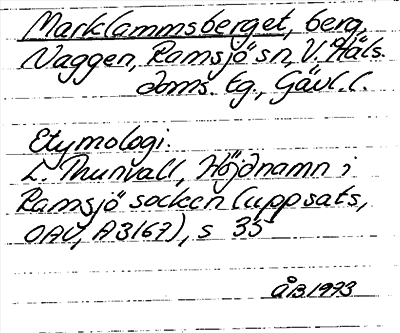 Marklammsberget, berg,
Naggen, Ramsjö sn, V. Häls.
doms. tg., Gävl. l.
Etymologi:
L. Thunvall, Höjdnamn i
Ramsjö socken (uppsats,
OAU, A3167), s 35
ÅB 1973